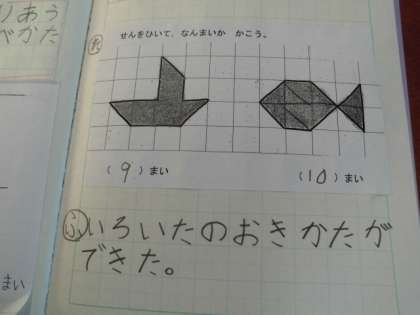 りあう
べかた
た
せんをひいて、なんまいか かこう。
(9)まい
(10)まい
ふ いろいたのおきかたが
できた。
まい